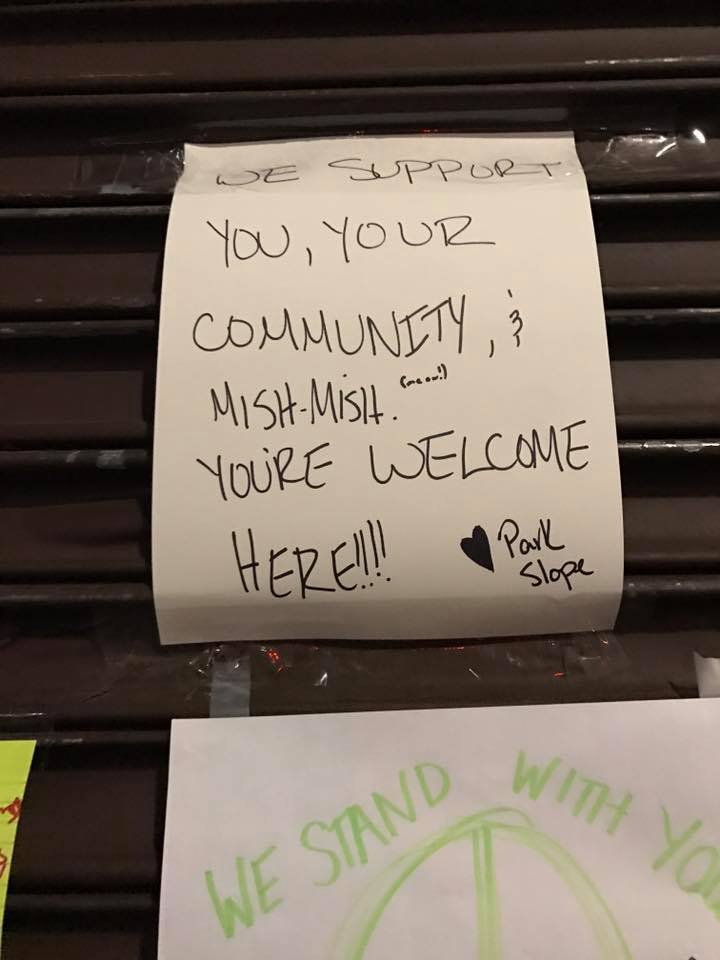 WE SUPPORT
YOU, YOUR
COMMUNITY, &
MISH-MISH. (meow!)
YOU'RE WELCOME
HERE!!!!
♥ Park
Slope
WE STAND WITH YOU